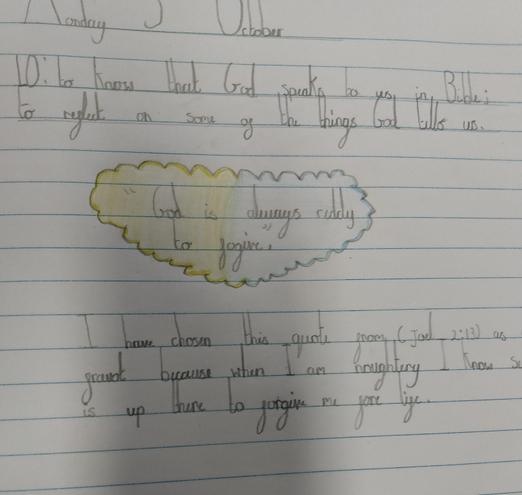 Monday 5 October
LO: to know that God speaks to us in Bible;
to reflect on some of the things God tells us.
"God is always reddy
to forgive."
I have chosen this quote from (Joel 2:13) as
because when I am noughtery I know
is up there to forgive me fore life.